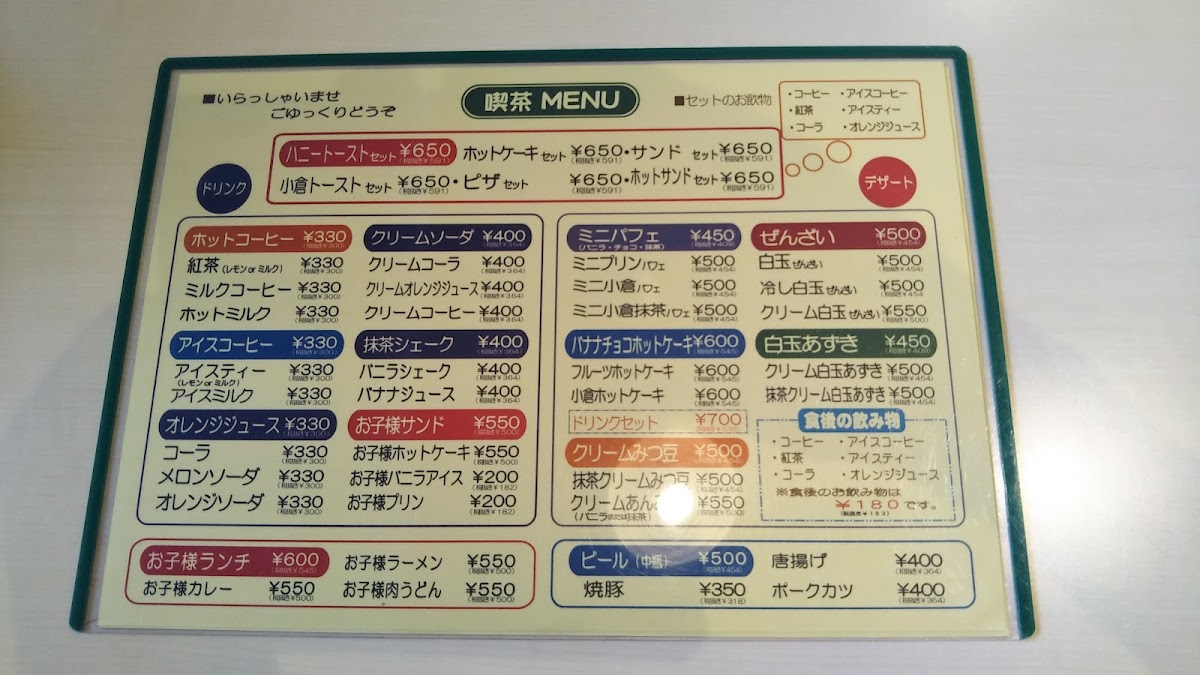 ■いらっしゃいませ
ごゆっくりどうぞ
喫茶 MENU
■セットのお飲物
・コーヒー ・アイスコーヒー
・紅茶 ・アイスティー
・コーラ ・オレンジジュース
ハニートーストセット ¥650 (税抜き¥591) ホットケーキセット ¥650 (税抜き¥591)・サンド セット ¥650 (税抜き¥591)
小倉トーストセット ¥650 (税抜き¥591)・ピザセット ¥650 (税抜き¥591)・ホットサンドセット ¥650 (税抜き¥591)
ドリンク
ホットコーヒー ¥330 (税抜き¥300)
紅茶(レモンorミルク) ¥330 (税抜き¥300)
ミルクコーヒー ¥330 (税抜き¥300)
ホットミルク ¥330 (税抜き¥300)
アイスコーヒー ¥330 (税抜き¥300)
アイスティー ¥330 (税抜き¥300)
(レモンorミルク)
アイスミルク ¥330 (税抜き¥300)
オレンジジュース ¥330 (税抜き¥300)
コーラ ¥330 (税抜き¥300)
メロンソーダ ¥330 (税抜き¥300)
オレンジソーダ ¥330 (税抜き¥300)
クリームソーダ ¥400 (税抜き¥364)
クリームコーラ ¥400 (税抜き¥364)
クリームオレンジジュース ¥400 (税抜き¥364)
クリームコーヒー ¥400 (税抜き¥364)
抹茶シェーク ¥400 (税抜き¥364)
バニラシェーク ¥400 (税抜き¥364)
バナナジュース ¥400 (税抜き¥364)
お子様サンド ¥550 (税抜き¥500)
お子様ホットケーキ ¥550 (税抜き¥500)
お子様バニラアイス ¥200 (税抜き¥182)
お子様プリン ¥200 (税抜き¥182)
デザート
ミニパフェ ¥450 (税抜き¥409)
(バニラ・チョコ・抹茶)
ミニプリンパフェ ¥500 (税抜き¥454)
ミニ小倉パフェ ¥500 (税抜き¥454)
ミニ小倉抹茶パフェ ¥500 (税抜き¥454)
バナナチョコホットケーキ ¥600 (税抜き¥545)
フルーツホットケーキ ¥600 (税抜き¥545)
小倉ホットケーキ ¥600 (税抜き¥545)
ドリンクセット ¥700
クリームみつ豆 ¥500 (税抜き¥454)
抹茶クリームみつ豆 ¥500 (税抜き¥454)
クリームあんみ ¥550 (税抜き¥500)
(バニラまたは抹茶)
ぜんざい ¥500 (税抜き¥454)
白玉ぜんざい ¥500 (税抜き¥454)
冷し白玉ぜんざい ¥500 (税抜き¥454)
クリーム白玉ぜんざい ¥550 (税抜き¥500)
白玉あずき ¥450 (税抜き¥409)
クリーム白玉あずき ¥500 (税抜き¥454)
抹茶クリーム白玉あずき ¥500 (税抜き¥454)
食後の飲み物
・コーヒー ・アイスコーヒー
・紅茶 ・アイスティー
・コーラ ・オレンジジュース
※食後のお飲み物は
¥180です。
(税抜き¥163)
お子様ランチ ¥600 (税抜き¥545) お子様ラーメン ¥550 (税抜き¥500)
お子様カレー ¥550 (税抜き¥500) お子様肉うどん ¥550 (税抜き¥500)
ビール(中瓶) ¥500 (税抜き¥454) 唐揚げ ¥400 (税抜き¥364)
焼豚 ¥350 (税抜き¥318) ポークカツ ¥400 (税抜き¥364)